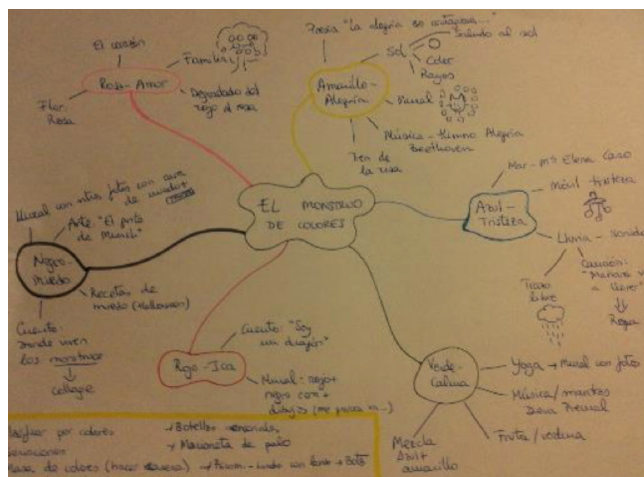 EL MONSTRUO
DE COLORES
Rosa-Amor
El corazón
Familia
Flor
Rosa
Degradado del
rojo al rosa
Amarillo-
Alegría
Poesía "La alegría es contagiosa..."
Sol
al sol
Color
Rayos
Mural
Música - Himno Alegría
Beethoven
Tren de
la risa
Azul-
Tristeza
Mar - Mª Elena
Móvil tristeza
Lluvia - sonido
Canción:
Trazo
libre
Ropa
Verde-
Calma
Yoga → Mural con fotos
Música/mantras
Deva Premal
Fruta/verdura
Mezcla
Azul+
amarillo
Rojo-Ira
Cuento: "Soy
un dragón"
Mural: rojo+
negro con+
dibujos (me pasa
Negro-
Miedo
Mural con ntras fotos con cara
de miedo+
Arte: "El grito
de Munch"
Recetas de
miedo (Halloween)
Cuento:
Donde viven
los monstruos
→ collage
por colores
→ Botellas sensoriales
→ Marioneta de palo
de colores (hacer